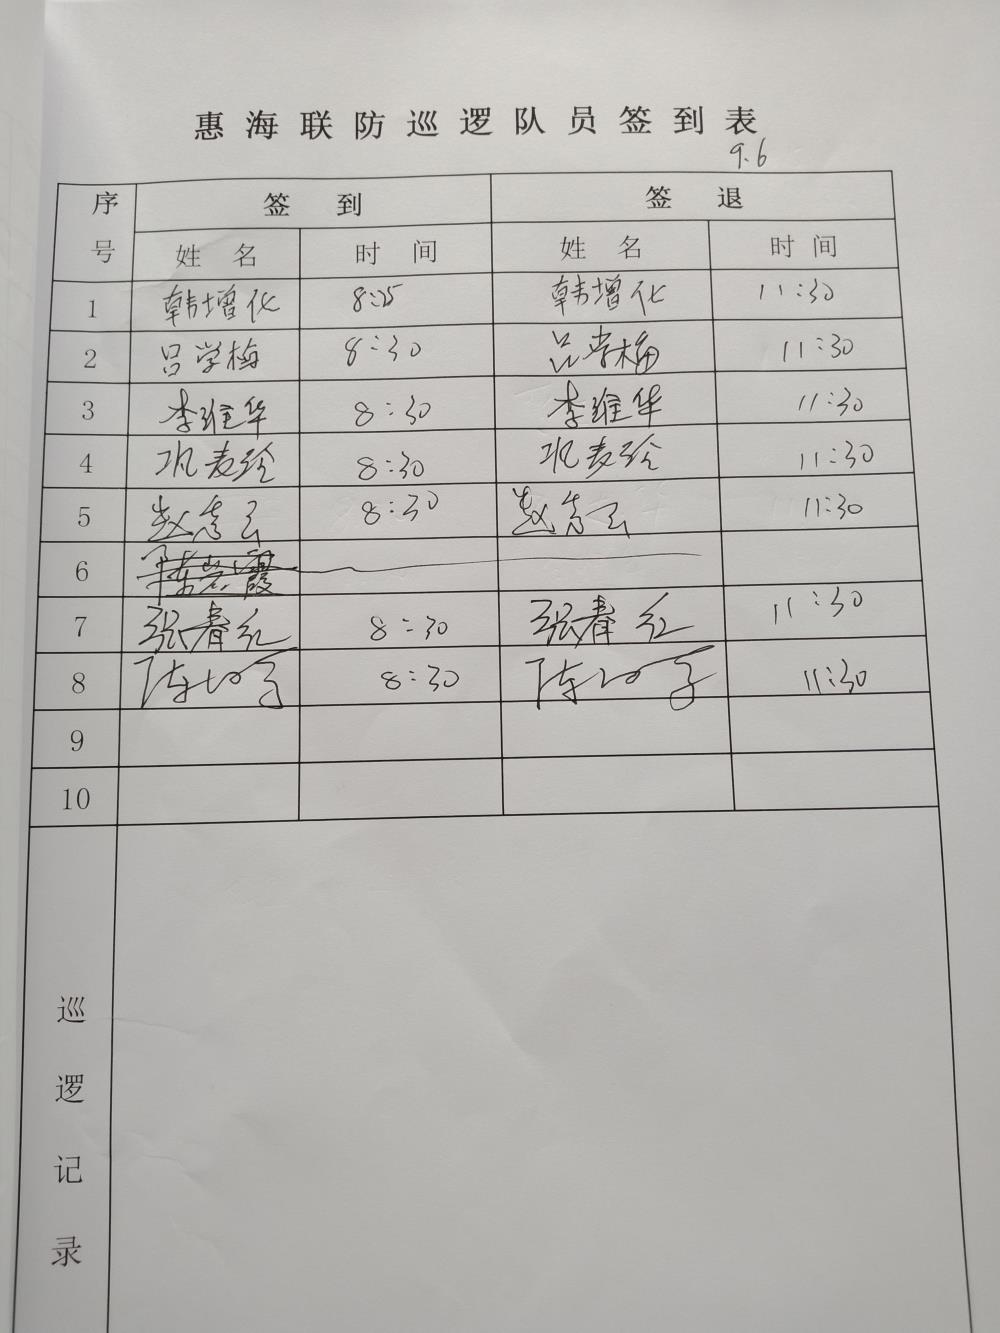 惠海联防巡逻队员签到表
9.6
序号 签到 签退
姓名 时间 姓名 时间
1 韩增化 8:25 韩增化 11:30
2 吕学梅 8:30 吕学梅 11:30
3 李维华 8:30 李维华 11:30
4 巩麦玲 8:30 巩麦玲 11:30
5 赵 云 8:30 赵 云 11:30
6
7 张春红 8:30 张春红 11:30
8 陈 8:30 陈 11:30
9
10
巡逻记录